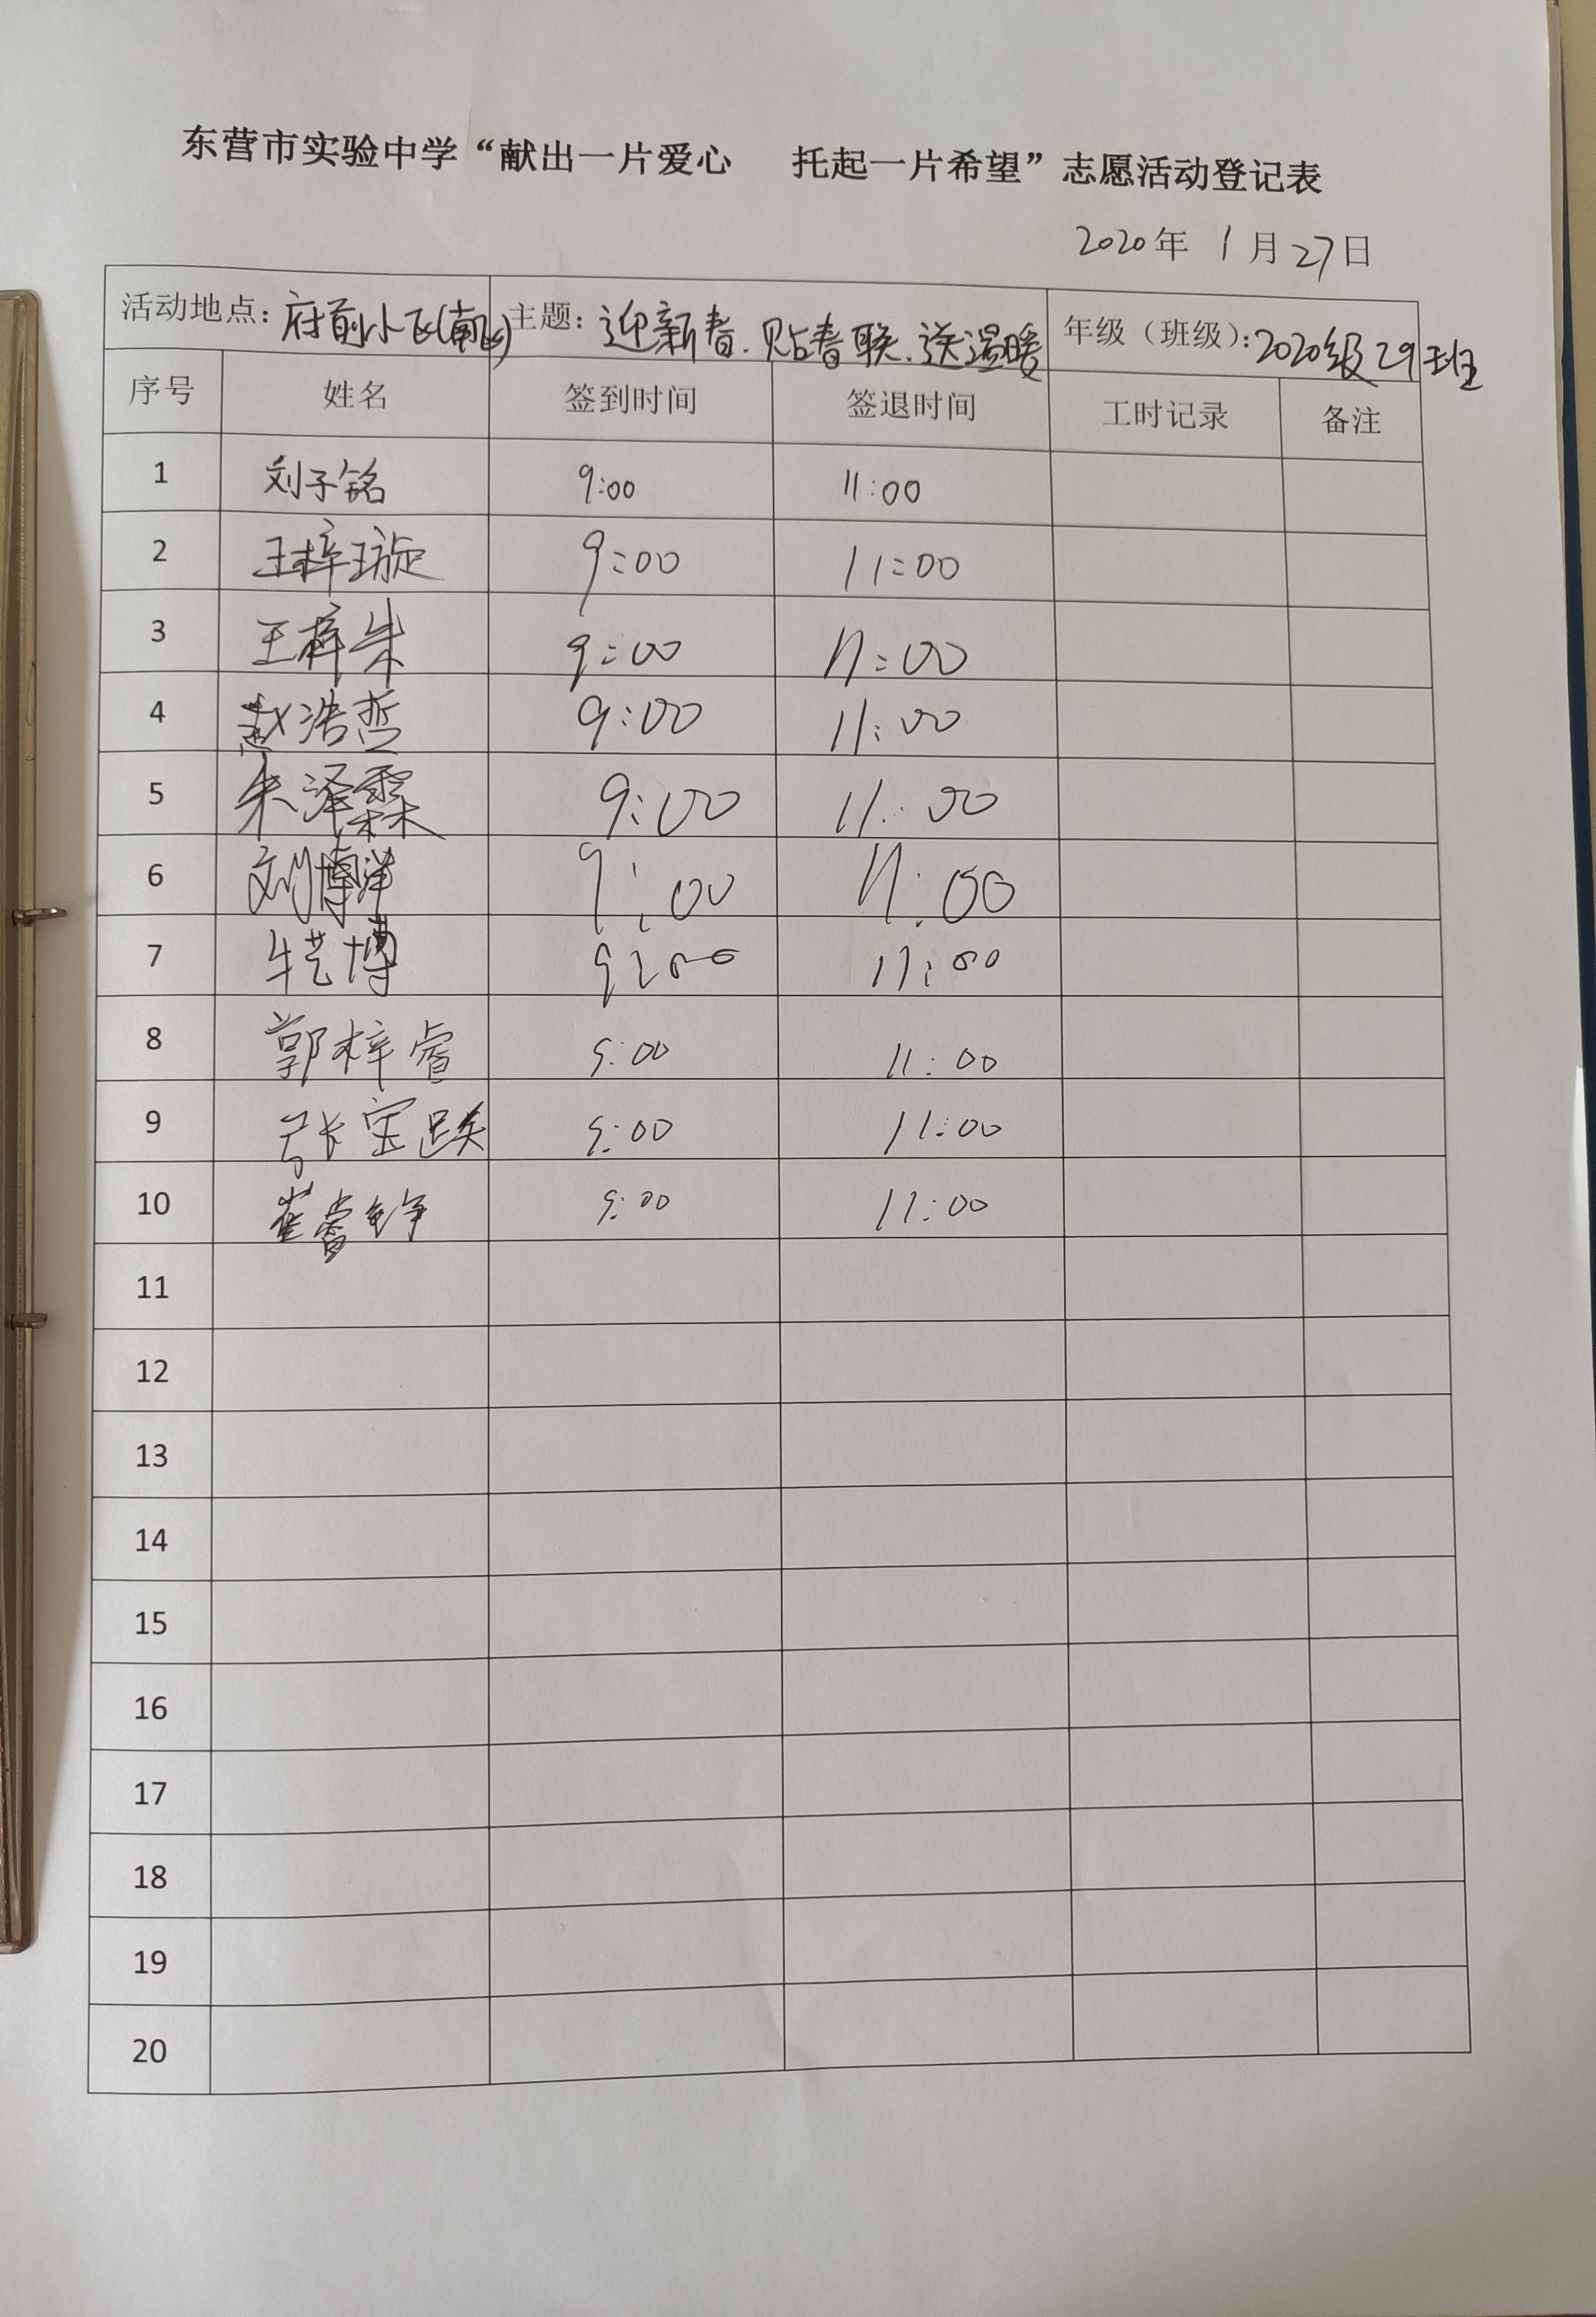 东营市实验中学“献出一片爱心 托起一片希望”志愿活动登记表
2020年 1月27日
活动地点：府前小区(南区) 主题：迎新春.贴春联.送温暖 年级（班级）：2020级29班
序号 姓名 签到时间 签退时间 工时记录 备注
1 刘子铭 9:00 11:00
2 王梓璇 9:00 11:00
3 王梓朱 9:00 11:00
4 赵浩哲 9:00 11:00
5 朱泽霖 9:00 11:00
6 刘博洋 9:00 11:00
7 牛艺博 9:00 11:00
8 郭梓睿 9:00 11:00
9 张宝轶 9:00 11:00
10 崔睿铮 9:00 11:00
11
12
13
14
15
16
17
18
19
20